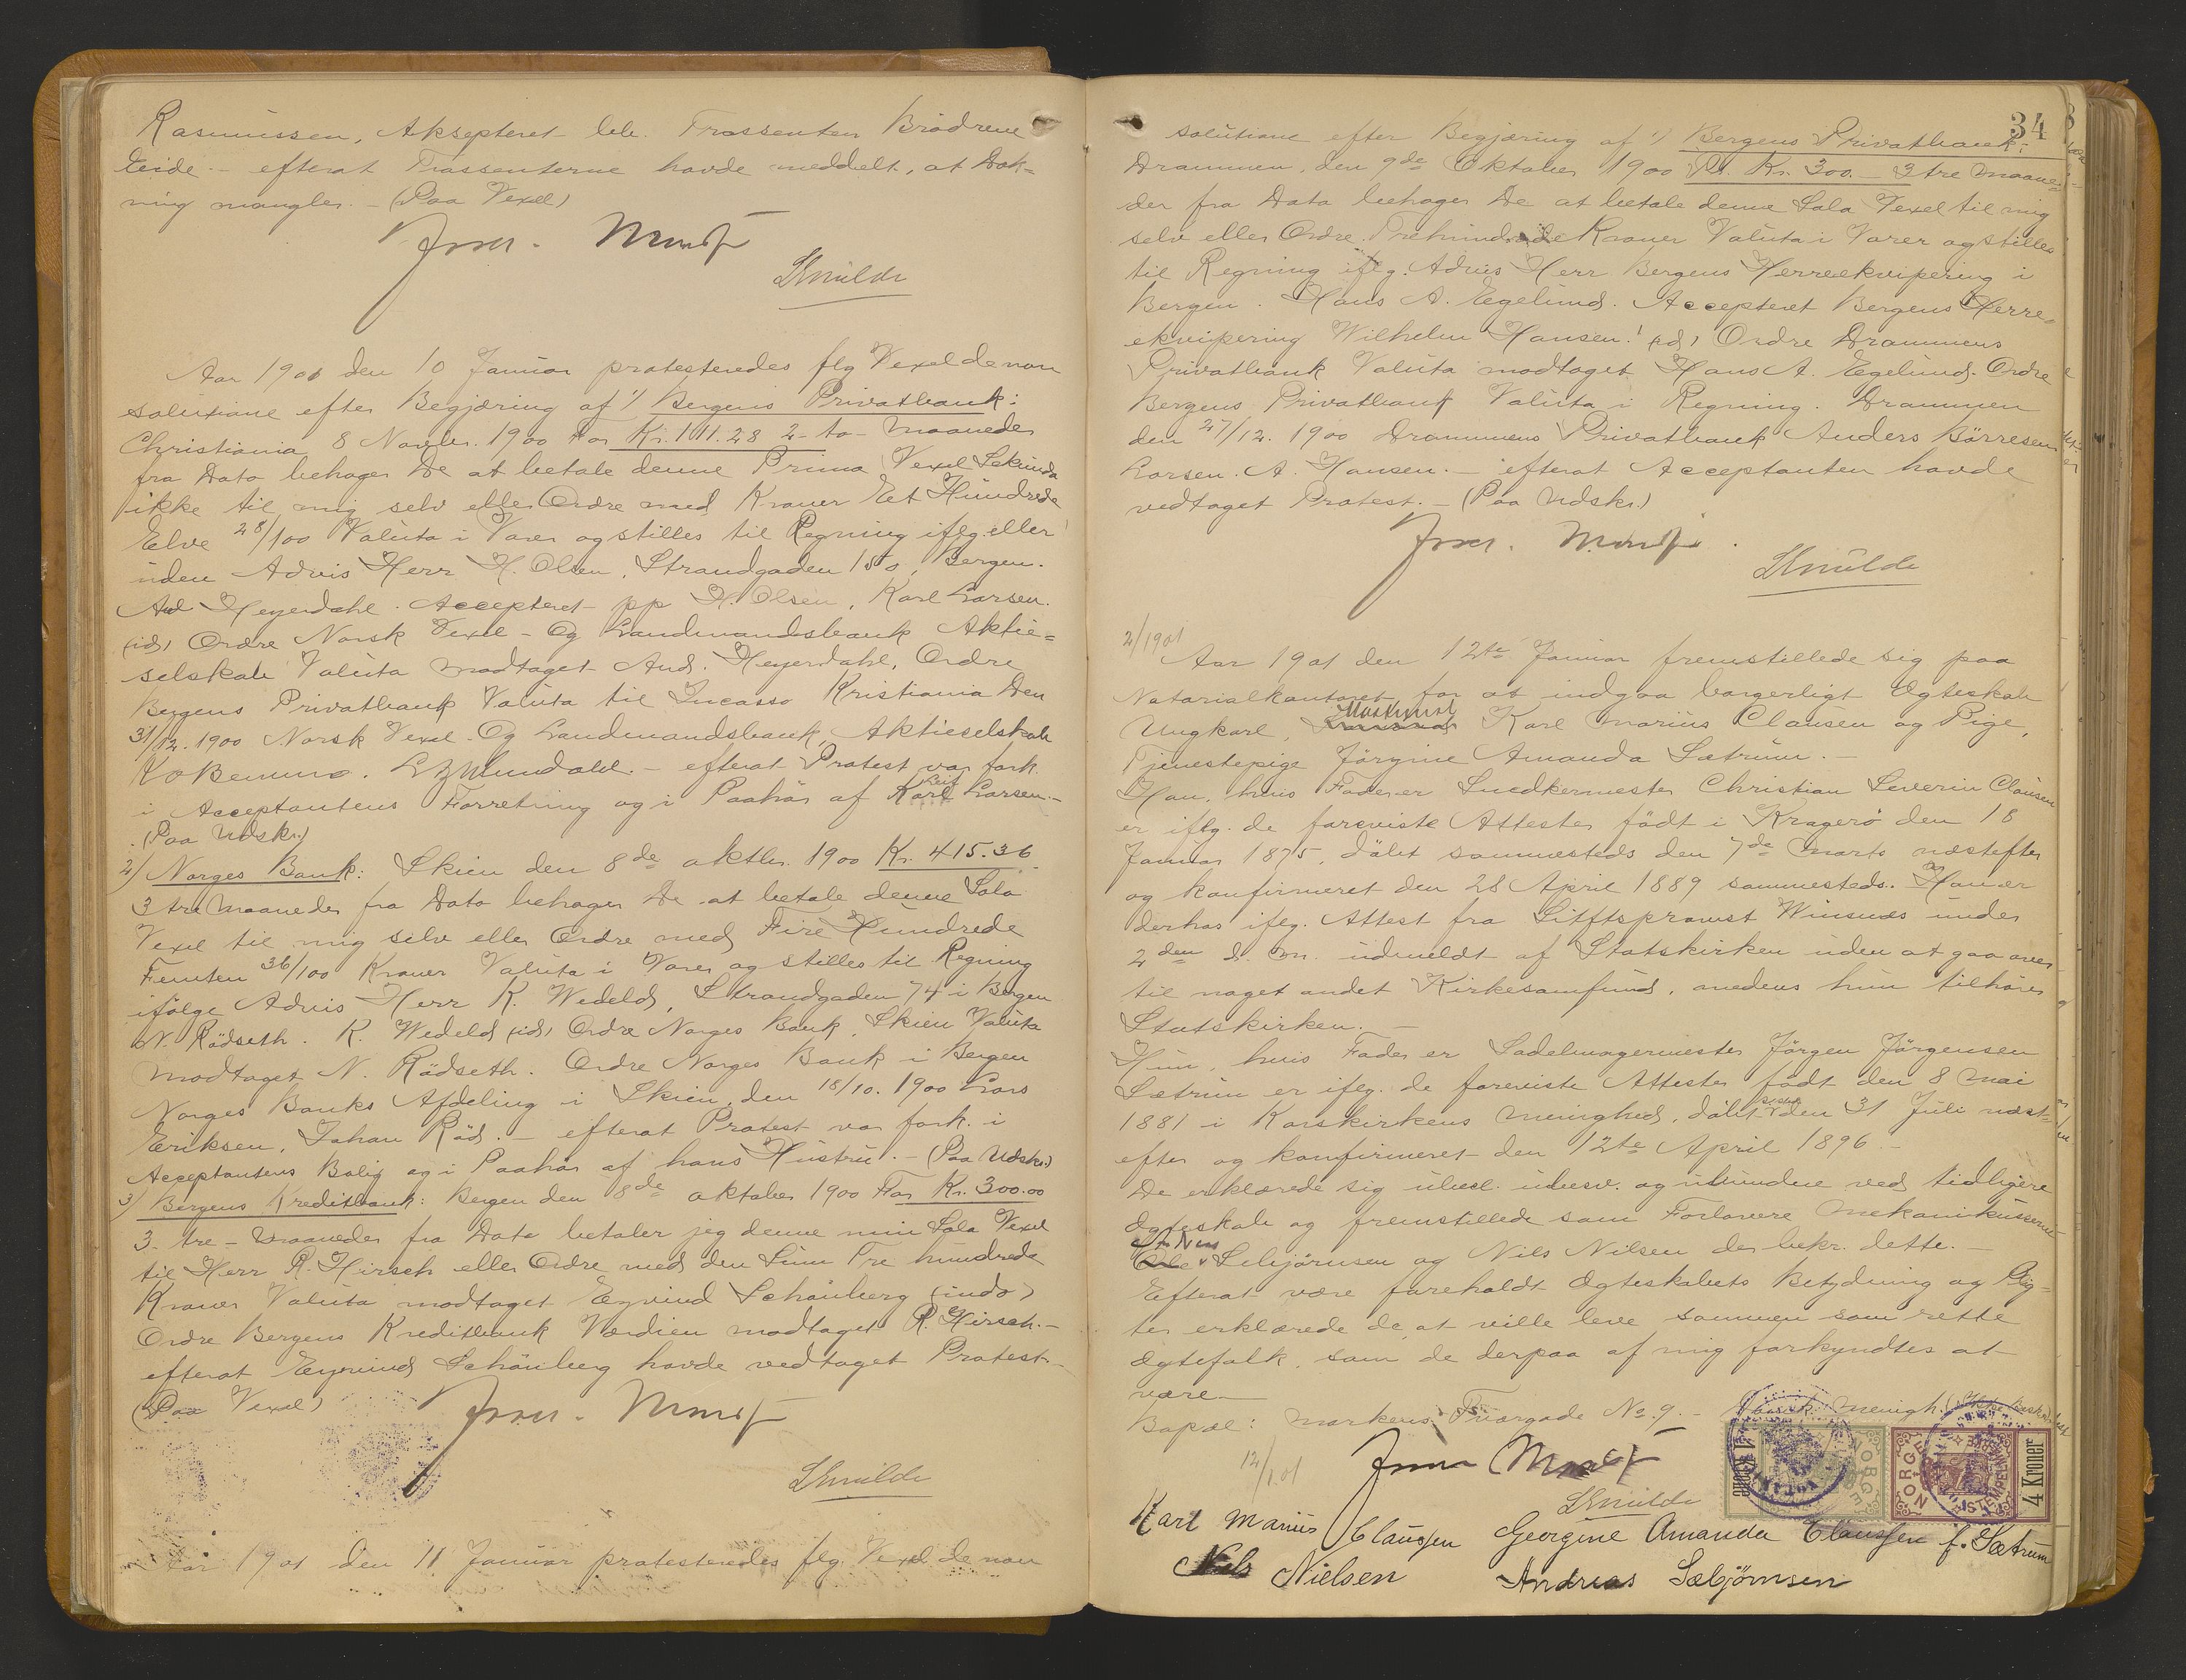 Rasmussen, Aksepteret lub. Trassenten Brödrene
Eeide - efterat Trassenterne havde meddelt, at Dæk-
ning mangler. - (Paa Vexel)
Skuilde
Aar 1901 den 10 Januar protesteredes flg Vexel de non
solutione efter Begjæring af 1/ Bergens Privatbank:
Christiania 8 Novbr. 1900 For Kr. 111.28 2- to- Maaneder
fra Dato behager De at betale denne Prima Vexel Sekunda
ikke til mig selv eller Ordre med Kroner Et Hundrede
Elve 28/100 Valuta i Varer og stilles til Regning iflg eller
uden Advis Herr H. Olsen, Strandgaden 150, Bergen.
And Heyerdahl. Accepteret pp H. Olsen, Karl Larsen.
(id) Ordre Norsk Vexel- Og Landmandsbank Aktie-
selskab Valuta modtaget And. Heyerdahl, Ordre
Bergens Privatbank Valuta til Incasso Kristiania Den
31/12. 1900 Norsk Vexel- Og Landmandsbank, Aktieselskab
- efterat Protest var fork.
i Acceptantens Forretning og i Paahör af Karl Larsen.-
(Paa Udskr.)
2) Norges Bank: Skien den 8de oktbr. 1900 Kr. 415.36
3 tre Maaneder fra Dato behager De at betale denne Sola
Vexel til mig selv eller Ordre med Fire Hundrede
Femten 36/100 Kroner Valuta i Varer og stilles til Regning
ifölge Advis Herr K. Wedeld, Strandgaden 74 i Bergen
N. Rödseth. K. Wedeld (id) Ordre Norges Bank, Skien Valuta
modtaget N. Rödseth. Ordre Norges Bank i Bergen
Norges Banks Afdeling i Skien, den 18/10. 1900 Lars
Eriksen, Johan Röd. - efterat Protest var fork. i
Acceptantens Bolig og i Paahör af hans Hustru. - (Paa Udskr.)
3) Bergens Kreditbank: Bergen den 8de oktober 1900 For Kr. 300.00
3- tre- Maaneder fra Dato betaler jeg denne min Sola Vexel
til Herr R. Hirsch eller Ordre med den Sum Tre hundrede
Kroner Valuta modtaget Eyvind Schönberg (indo)
Ordre Bergens Kreditbank Værdien modtaget R. Hirsch.-
efterat Eyvind Schönberg havde vedtaget Protest.-
(Paa Vexel)
Skuilde
Aar 1901 den 11 Januar protesteredes flg. Vexel de non
34
solutione efter Begjæring af 1) Bergens Privatbank:
Drammen, den 9de Oktober 1900 Kr. 300.- 3 tre Maane-
der fra Dato behager De at betale denne Sola Vexel til mig
selv eller Ordre Trehundrede Kroner Valuta i Varer og stilles
til Regning iflg. Advis Herr Bergens Herreekvipering i
Bergen. Hans A. Egelund. Accepteret Bergens Herre-
ekvipering Wilhelm Hansen! (id) Ordre Drammens
Privatbank Valuta modtaget Hans A. Egelund. Ordre
Bergens Privatbank Valuta i Regning. Drammen
den 27/12. 1900 Drammens Privatbank Anders Börresen
Larsen. A. Hansen. - efterat Acceptanten havde
vedtaget Protest. - (Paa Udskr.)
Skuilde
2/1901
Aar 1901 den 12te Januar fremstillede sig paa
Notarialkontoret for at indgaa borgerligt Ægteskab
Ungkarl, Maskinist Karl Marius Clausen og Pige,
Tjenestepige Jörgine Amanda Sætrum.-
Han, hvis Fader er Snedkermester Christian Severin Clausen
er iflg. de foreviste Attester födt i Kragerö den 18
Januar 1875, döbt sammesteds den 7de Marts næstefter
og konfirmeret den 28 April 1889 sammesteds. Han er
derhos iflg. Attest fra Stiftsprovst Winsnes under
2den d. m. udmeldt af Statskirken uden at gaa over
til noget andet Kirkesamfund, medens hun tilhörer
Statskirken. -
Hun, hvis Fader er Sadelmagermester Jörgen Jörgensen
Sætrum er iflg. de foreviste Attester födt den 8 Mai
1881 i Korskirkens Menighed, döbt den 31 Juli næst-
efter og konfirmeret den 12te April 1896 -
De erklærede sig ubesl. ubesv. og ubundne ved tidligere
Ægteskab og fremstillede som Forlovere Mekanikusserne
Andreas Sebjörnsen og Nils Nilsen der bekr. dette. -
Efterat være foreholdt Ægteskabets Betydning og Plig-
ter erklærede de at ville leve sammen som rette
Ægtefolk, som de derpaa af mig forkyndtes at
være.-
Bopæl: Markens Tværgade No. 9. - menigh.
12/1 01
Skuilde
NORGE 1 Krone
NORGE 4 Kroner
Karl Marius Claussen Georgine Amanda Claussen f. Sætrum
Nils Nielsen Andreas Sæbjörnsen